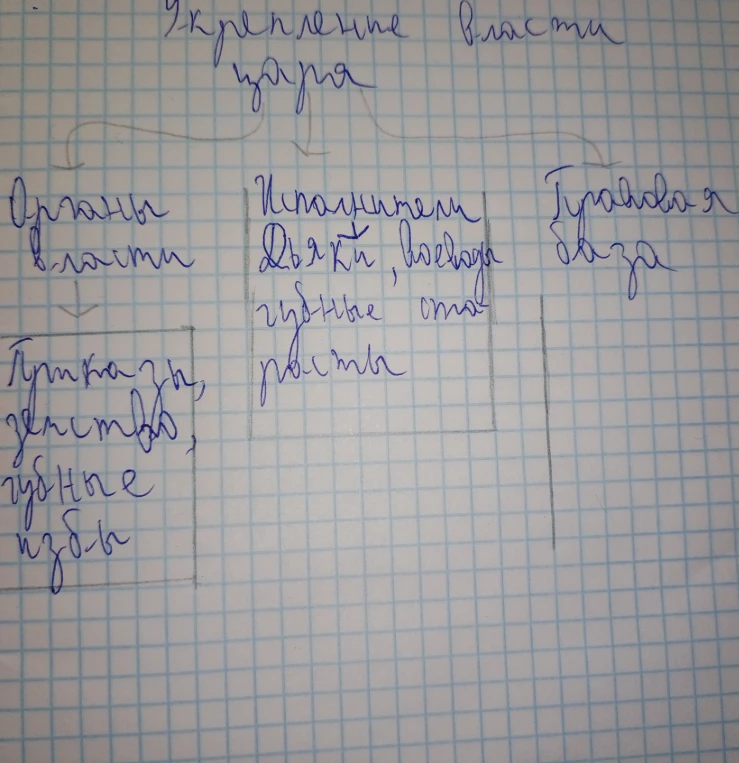 Укрепление власти
царя
Органы
власти
Исполнители
Дьяки, воеводы
губные ста-
росты
Правовая
база
Приказы,
земство,
губные
избы